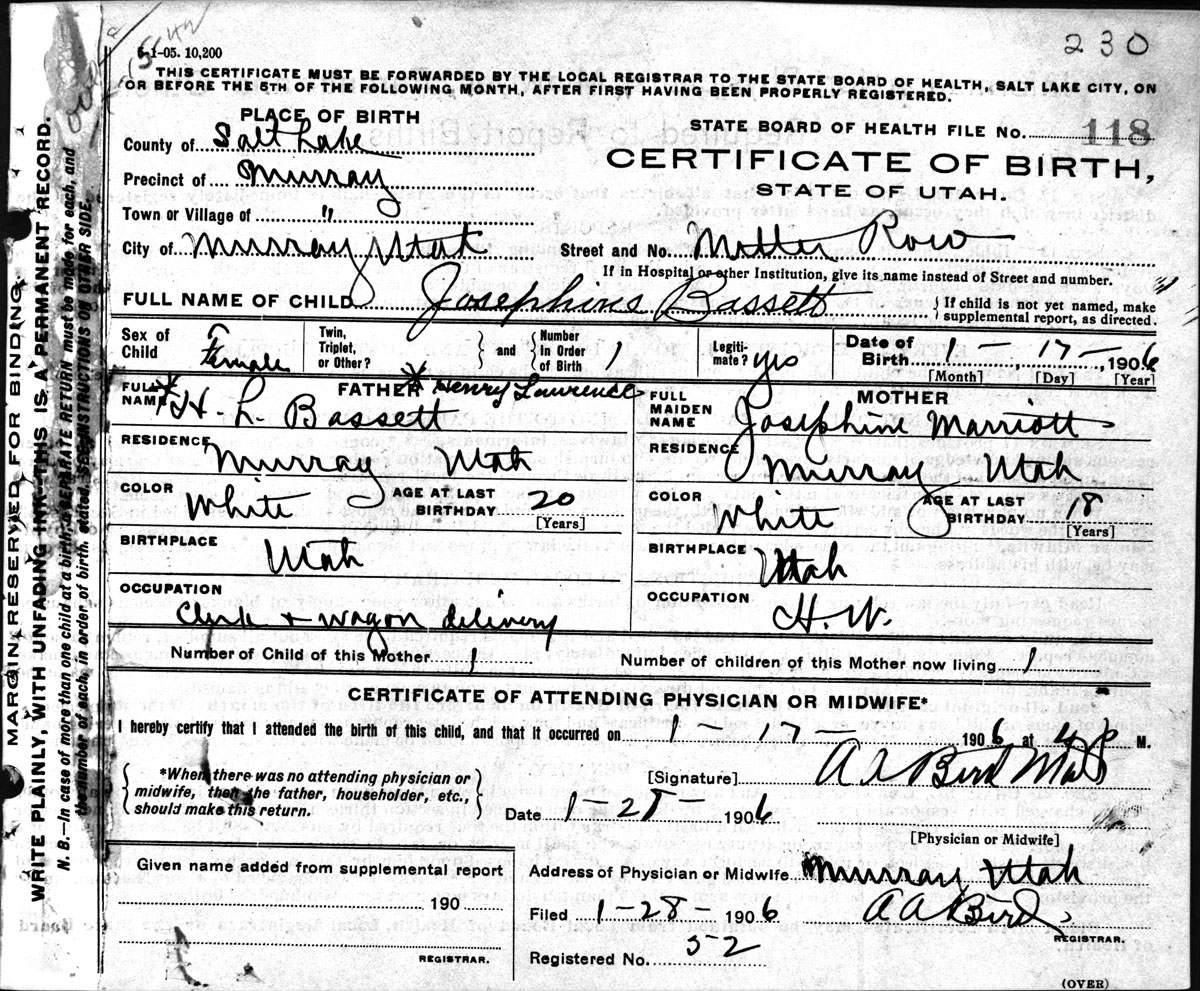 230
5-1-05. 10,200
THIS CERTIFICATE MUST BE FORWARDED BY THE LOCAL REGISTRAR TO THE STATE BOARD OF HEALTH, SALT LAKE CITY, ON
OR BEFORE THE 5TH OF THE FOLLOWING MONTH, AFTER FIRST HAVING BEEN PROPERLY REGISTERED.
PLACE OF BIRTH
County of Salt Lake
Precinct of Murray
Town or Village of "
City of Murray Utah
STATE BOARD OF HEALTH FILE No. 118
CERTIFICATE OF BIRTH,
STATE OF UTAH.
Street and No. Miller Row
If in Hospital or other Institution, give its name instead of Street and number.
FULL NAME OF CHILD Josephine Bassett
} If child is not yet named, make
supplemental report, as directed.
Sex of Child Female
Twin, Triplet, or Other?
} and { Number In Order of Birth 1
Legiti-mate? yes
Date of Birth 1 - 17 - , 1906
[Month] [Day] [Year]
FATHER * Henry Lawrence
FULL NAME * H. L. Bassett
RESIDENCE Murray Utah
COLOR White AGE AT LAST BIRTHDAY 20
[Years]
BIRTHPLACE Utah
OCCUPATION
Clerk + wagon delivery
MOTHER
FULL MAIDEN NAME Josephine Marriott
RESIDENCE Murray Utah
COLOR White AGE AT LAST BIRTHDAY 18
[Years]
BIRTHPLACE Utah
OCCUPATION H. W.
Number of Child of this Mother 1 Number of children of this Mother now living 1
CERTIFICATE OF ATTENDING PHYSICIAN OR MIDWIFE*
I hereby certify that I attended the birth of this child, and that it occurred on 1 - 17 - 1906 at 4 P M.
{ *When there was no attending physician or
midwife, then the father, householder, etc.,
should make this return. }
[Signature] A A Bird
Date 1-28- 1906
[Physician or Midwife]
Given name added from supplemental report
190
REGISTRAR.
Address of Physician or Midwife Murray Utah
Filed 1-28- 1906 A A Bird
REGISTRAR.
Registered No. 52
(OVER)
MARGIN RESERVED FOR BINDING
WRITE PLAINLY, WITH UNFADING INK-THIS IS A PERMANENT RECORD.
N. B.—In case of more than one child at a birth, a SEPARATE RETURN must be made for each, and
the number of each, in order of birth, stated. SEE INSTRUCTIONS ON OTHER SIDE.